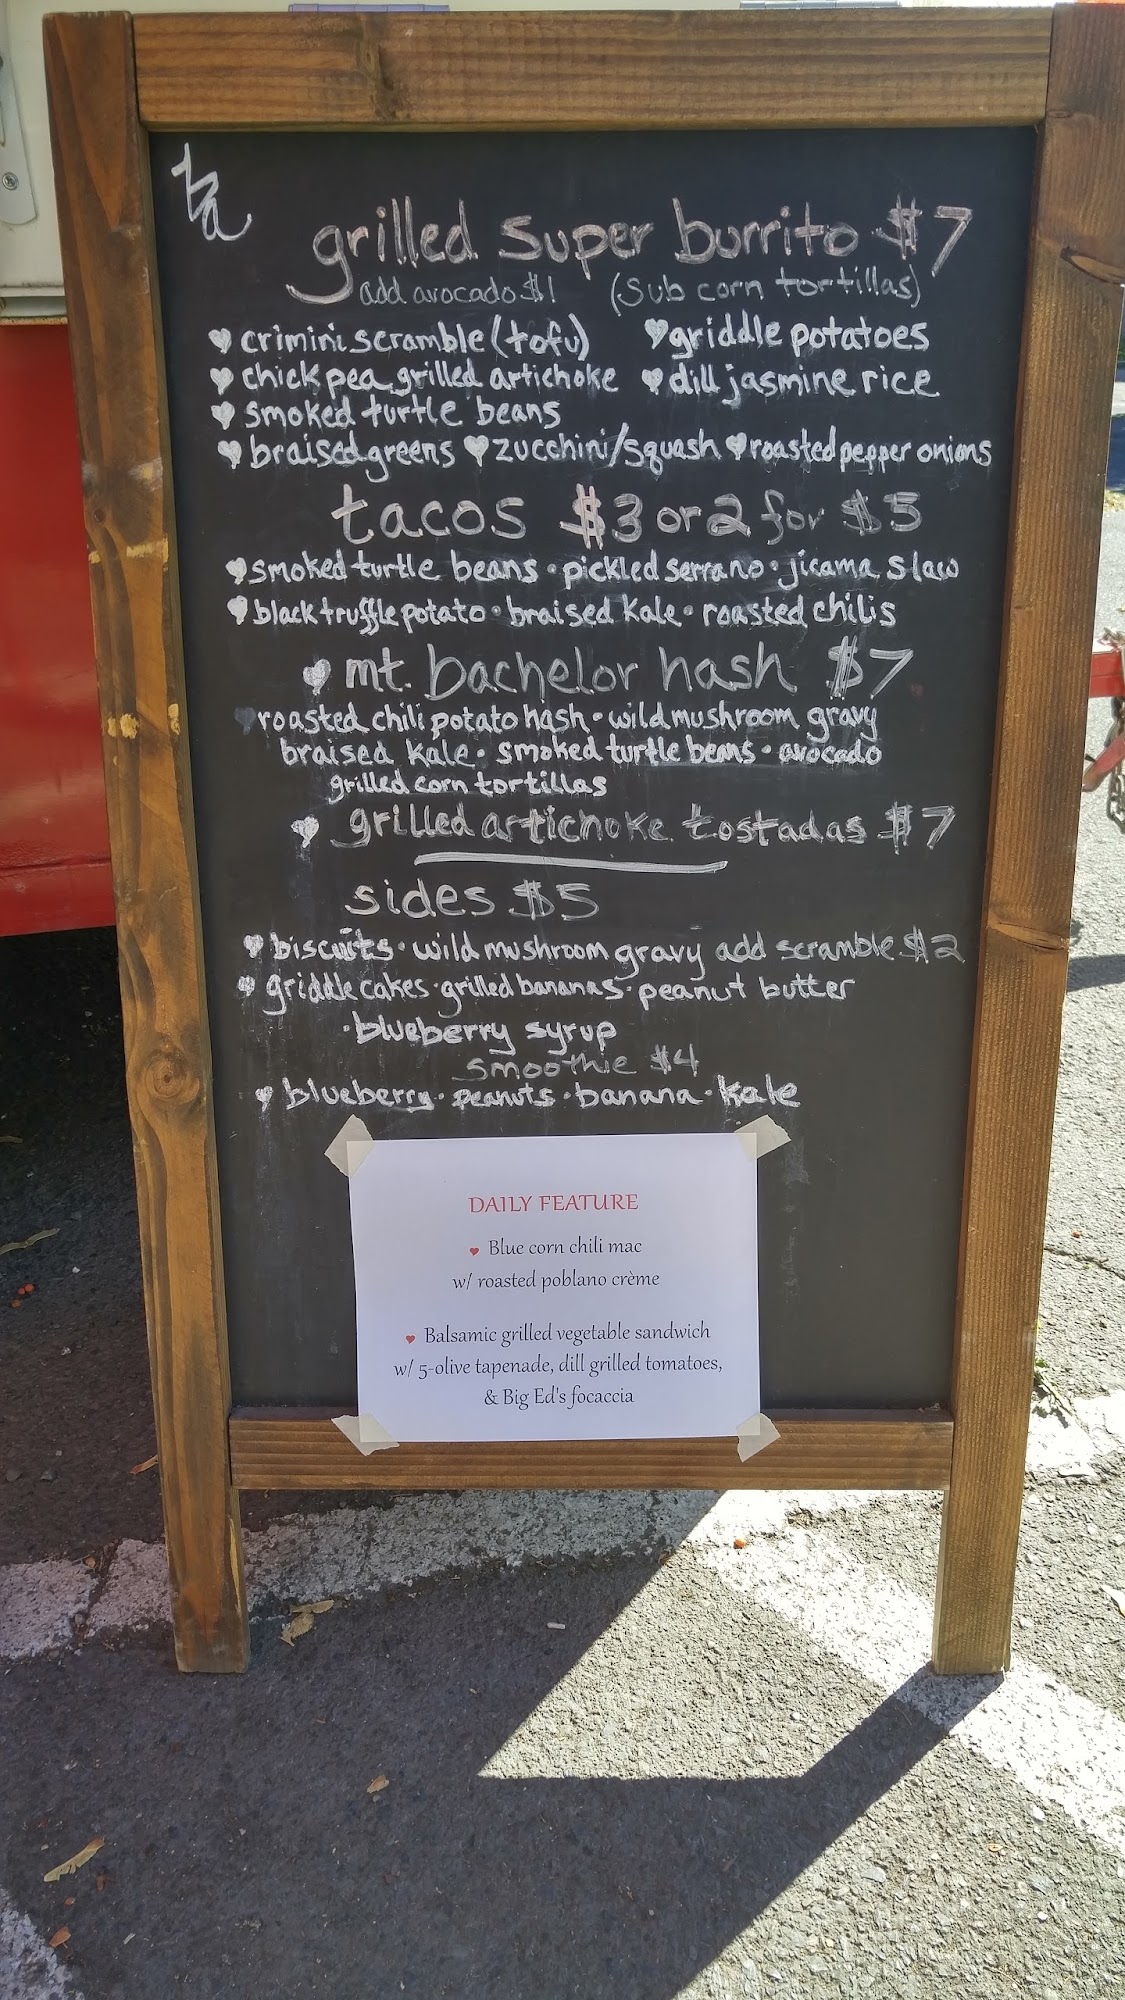 grilled super burrito $7
add avocado $1 (sub corn tortillas)
♥ crimini scramble (tofu) ♥ griddle potatoes
♥ chick pea grilled artichoke ♥ dill jasmine rice
♥ smoked turtle beans
♥ braised greens ♥ zucchini/squash ♥ roasted pepper onions
tacos $3 or 2 for $5
♥ smoked turtle beans · pickled serrano · jicama slaw
♥ black truffle potato · braised kale · roasted chilis
♥ mt. bachelor hash $7
♥ roasted chili potato hash · wild mushroom gravy
braised kale · smoked turtle beans · avocado
grilled corn tortillas
♥ grilled artichoke tostadas $7
sides $5
♥ biscuits · wild mushroom gravy add scramble $2
♥ griddle cakes · grilled bananas · peanut butter
· blueberry syrup
smoothie $4
♥ blueberry · peanuts · banana · kale
DAILY FEATURE
♥ Blue corn chili mac
w/ roasted poblano crème
♥ Balsamic grilled vegetable sandwich
w/ 5-olive tapenade, dill grilled tomatoes,
& Big Ed's focaccia